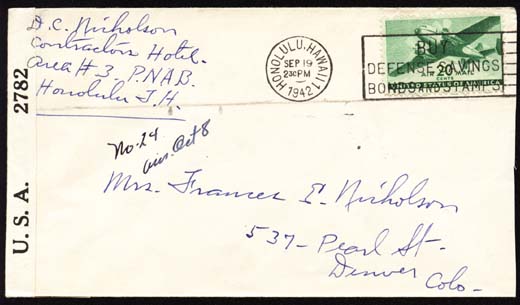 D. C. Nicholson
Contractors Hotel.
Area # 3. P.N.A.B.
Honolulu T.H.
U.S.A. 2782
HONOLULU, HAWAII
SEP 19
230 PM
1942
1
BUY
DEFENSE SAVINGS
BONDS AND STAMPS
AIR 20 MAIL
CENTS
UNITED STATES OF AMERICA
No. 24
Oct 8
Mrs. Frances E. Nicholson
537 - Pearl St.
Denver
Colo -